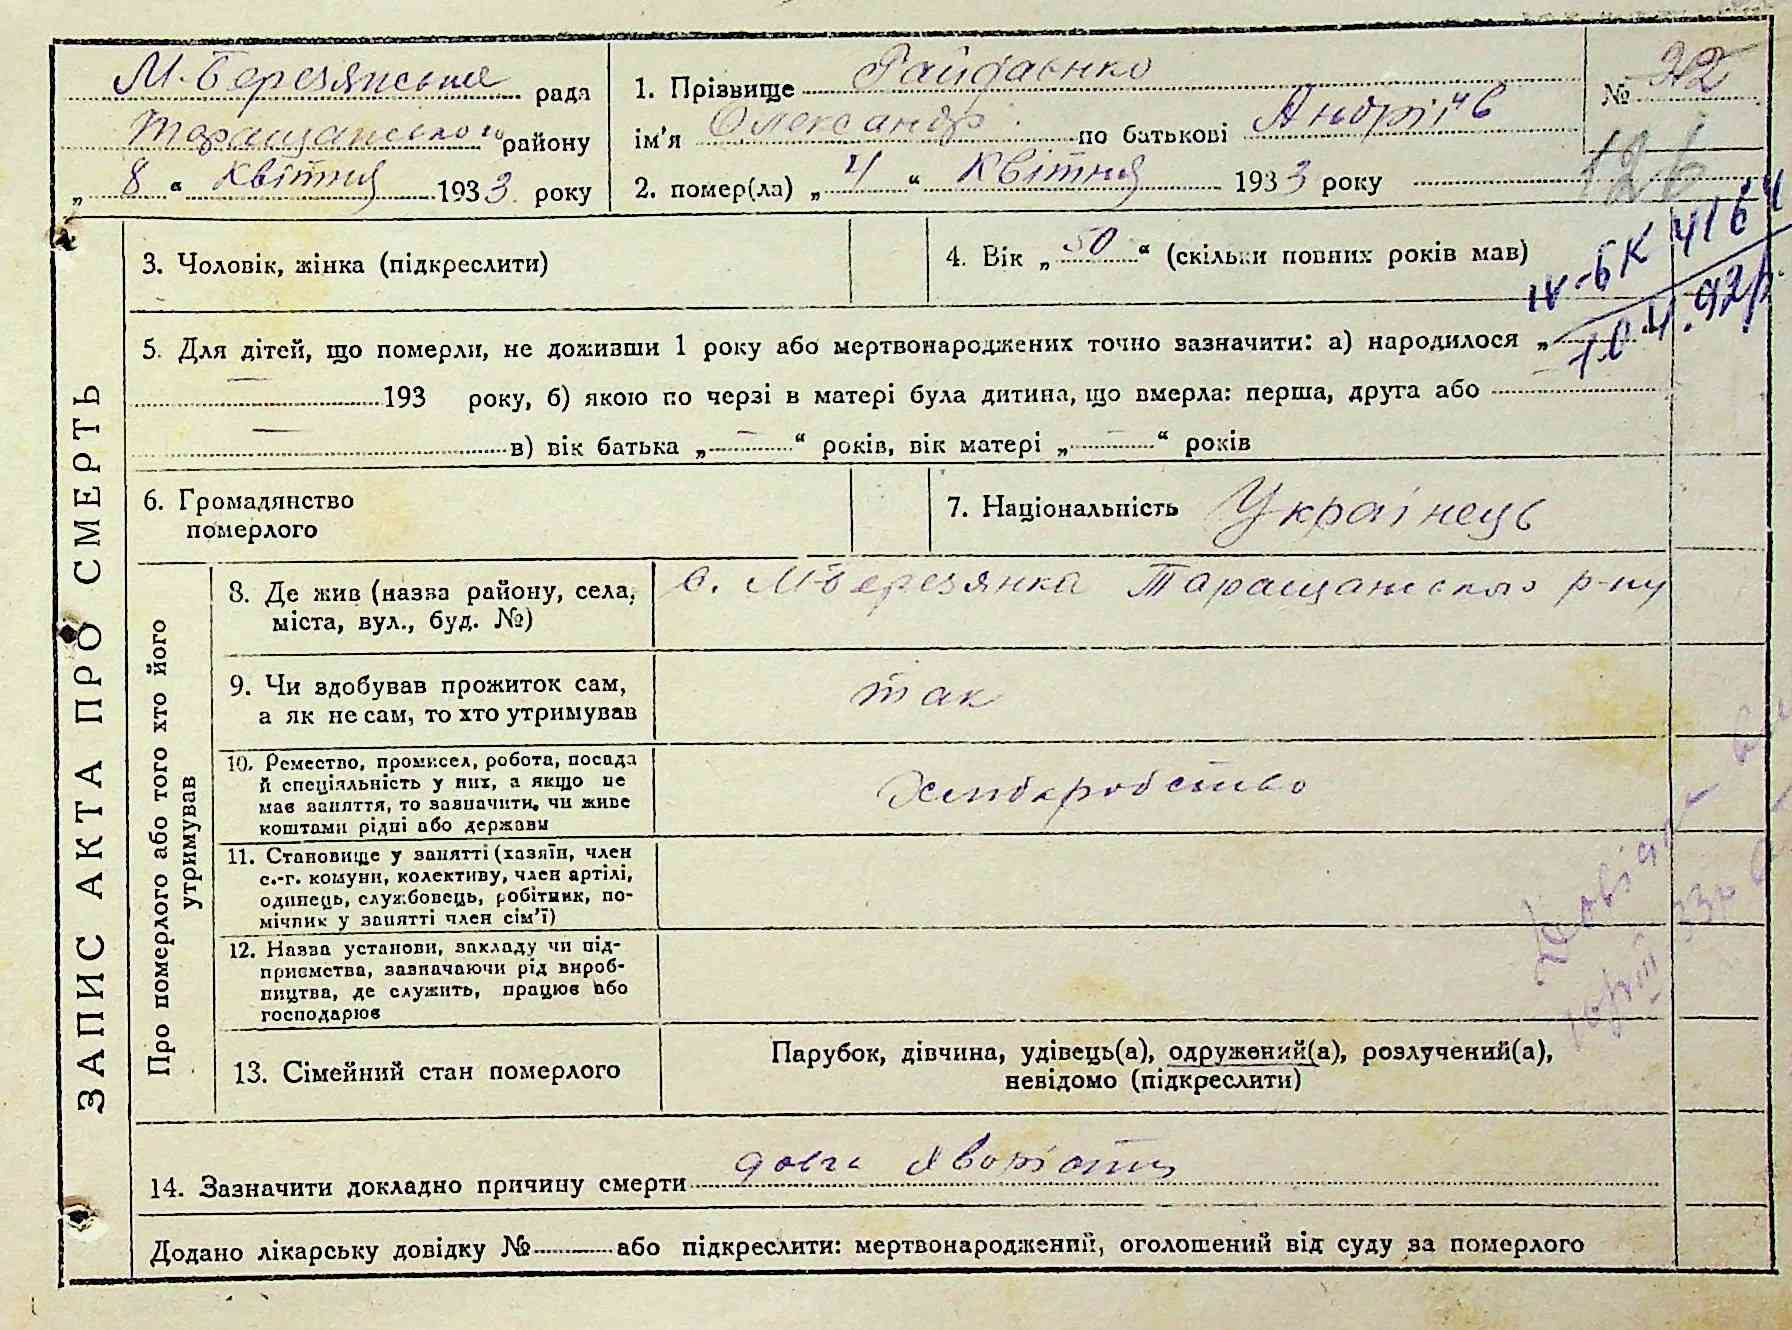 М-Березянська рада
Таращанського району
„ 8 “ Квітня 1933 року
1. Прізвище Гайдаєнко
ім'я Олександр по батькові Андрієв
2. помер(ла) „ 4 “ Квітня 1933 року
№ 22
126
ІV-БК 4164
10.4.92р.
ЗАПИС АКТА ПРО СМЕРТЬ
3. Чоловік, жінка (підкреслити)
4. Вік „ 50 “ (скільки повних років мав)
5. Для дітей, що померли, не доживши 1 року або мертвонароджених точно зазначити: а) народилося „
— 193 року, б) якою по черзі в матері була дитина, що вмерла: перша, друга або
— в) вік батька „ — “ років, вік матері „ — “ років
6. Громадянство
померлого
7. Національність Українець
Про померлого або того хто його
утримував
8. Де жив (назва району, села,
міста, вул., буд. №)
с. М-Березянка Таращанського р-ну
9. Чи здобував прожиток сам,
а як не сам, то хто утримував
так
10. Ремество, промисел, робота, посада
й спеціяльність у них, а якщо не
має заняття, то зазначити, чи живе
коштами рідні або держави
Хліборобство
11. Становище у занятті (хазяїн, член
с.-г. комуни, колективу, член артілі,
одинець, службовець, робітник, по-
мічник у занятті член сім'ї)
12. Назва установи, закладу чи під-
приємства, зазначаючи рід вироб-
ництва, де служить, працює або
господарює
13. Сімейний стан померлого
Парубок, дівчина, удівець(а), одружений(а), розлучений(а),
невідомо (підкреслити)
14. Зазначити докладно причину смерти
Додано лікарську довідку № або підкреслити: мертвонароджений, оголошений від суду за померлого